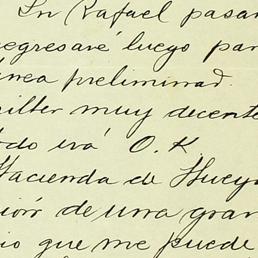 Sn Rafael pasar
regresaré luego par
linea preliminar.
muy decente
todo irá O.K.
Hacienda de Huey
ión de una gran
io que me puede